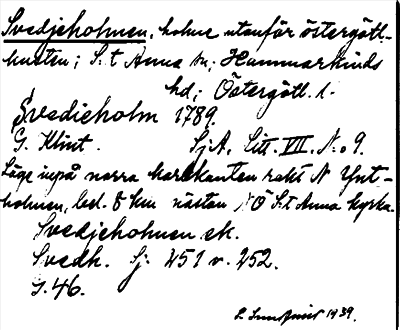 Svedjeholmen, holme utanför östergötl.-
kusten; S:t Anna sn; Hammarkinds
hd; Östergötl. l.
Svedieholm 1789.
G. Klint. Sj.A. Litt. VIII. N:o 9.
Läge invpå norra kartkanten rakt N Ynt-
holmen, bel. 8 km nästan NÖ S:t Anna kyrka.
Svedjeholmen ek.
Svedh. Sj. 251 v. 252.
S. 46.
1939.